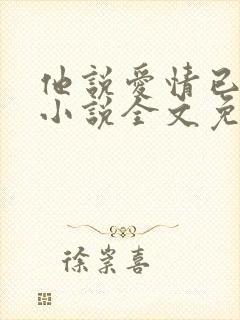 他說愛情已
小說全文免
徐崇喜